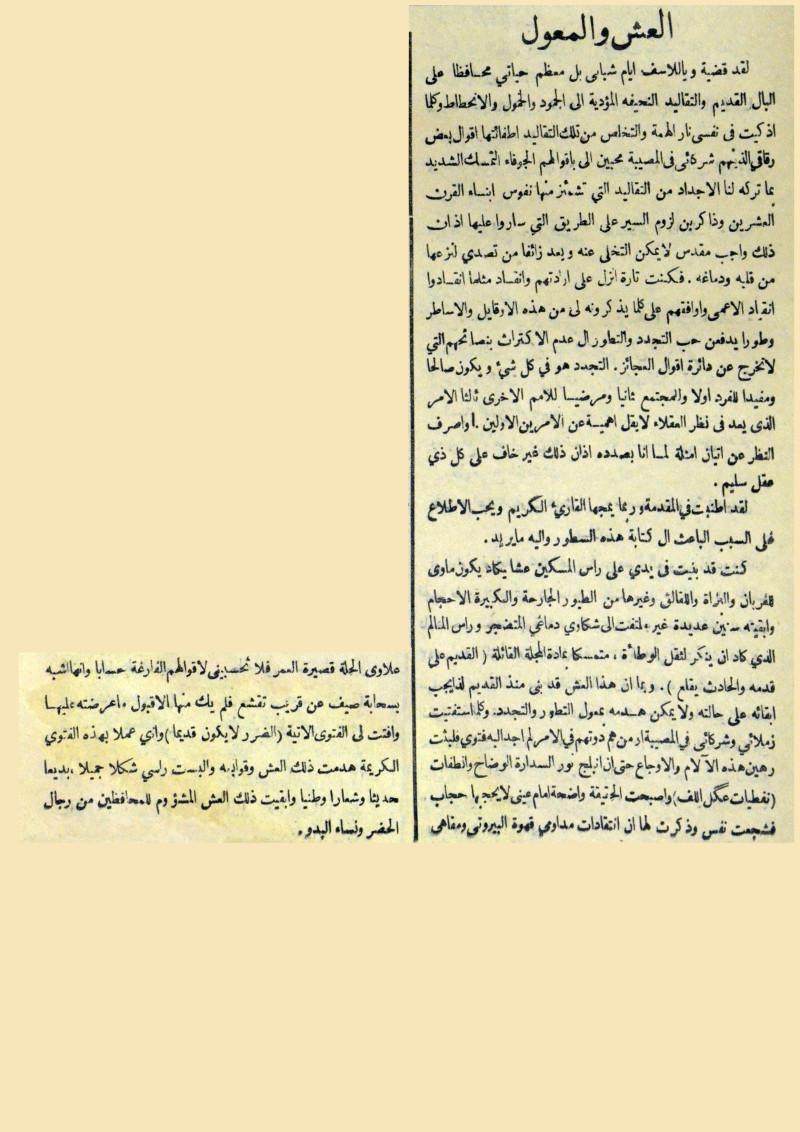 العش والمعول
لقد قضية وياللاسف ايام شبابى بل معظم حياتي محافظا على
البال القديم والتقاليد النحيفه المؤدية الى الجمود والخمول والانحطاط وكلما
اذكيت فى نفسى نار الهمة والتخلص من تلك التقاليد اطفائتها اقوال بعض
رفاقي الذينهم شركائى فى المصيبة محبين الى باقوالهم الجوفاء التمسك الشديد
بما تركه لنا الاجداد من التقاليد التي تشمئز منها نفوس ابناء القرن
العشرين وذاكرين لزوم السير على الطريق التي ساروا عليها اذان
ذلك واجب مقدس لايمكن التخلى عنه ويعد زائفا من تصدي لنزعها
من قلبه ودماغه . فكنت تارة انزل على ارادتهم وانقاد مثلما انقادوا
انقياد الاعمى واوافقهم على كلما يذكرونه لى من هذه الاقاويل والاساطر
وطورا يدفعن حب التجدد والتطور ال عدم الاكتراث بنصائحهم التي
لاتخرج عن دائرة اقوال العجائز . التجدد هو في كل شئ ويكون صالحا
ومفيدا للفرد اولا والمجتمع ثانيا ومرضيا للامم الاخرى ثالثا الامر
الذى يعد فى نظر العقلاء لايقل اهمية عن الامرين الاولين . واصرف
النظر عن اتيان امثلة لما انا بصدده اذان ذلك غير خاف على كل ذي
عقل سليم .
لقد اطنبت في المقدمة وربما يمجها القارئ الكريم ويحب الاطلاع
على السبب الباعث ال كتابة هذه السطور واليه مايريد .
كنت قد بنيت فى يدي على راس المسكين عشا يكاد يكون ماوى
للغربان والبزاة واللقالق وغيرها من الطيور الجارحة والكبيرة الاحجام
وابقيته سنين عديدة غير ملتفت الى شكاوي دماغي المتضجر وراس المتالم
الذي كاد ان يذكر لثقل الوطأة ، متمسكا بمادة المجلة القائلة ( القديم على
قدمه والحادث يقلع ) . وبما ان هذا العش قد بنى منذ القديم لذا يجب
ابقائه على حالته ولا يمكن هدمه بمعول التطور والتجدد. وكلما استفتيت
زملائي وشركائى في المصيبة ارمن هم دوتهم في الامر لم اجد اليه فتوي فلبثت
رهين هذه الآلام والاوجاع حتى ان ابلج نور السدارة الوضاح وانطفات
(نفطيات عگل اللف) واصبحت الحقيقة واضحة امام عينى لايحجبها حجاب
فشجعت نفس وذكرت لها ان انتقادات مداومي قهوة البيروتى ومقاهى
علاوى الحلة قصيرة العمر فلا تحسبينى لاقوالهم الفارغة حسابا وانها اشبه
بسحابة صيف عن قريب تقشع فلم يك منها الاقبول ماعرضته عليها
وافتت لى الفتوى الاتية (الضرر لايكون قديما) واني عملا بهذه الفتوي
الكريمة هدمت ذلك العش وقوابه والبست راسي شكلا جميلا ، بديعا
حديثا وشعارا وطنيا وابقيت ذلك العش المشؤوم للمحافظين من رجال
الحضر ونساء البدو .